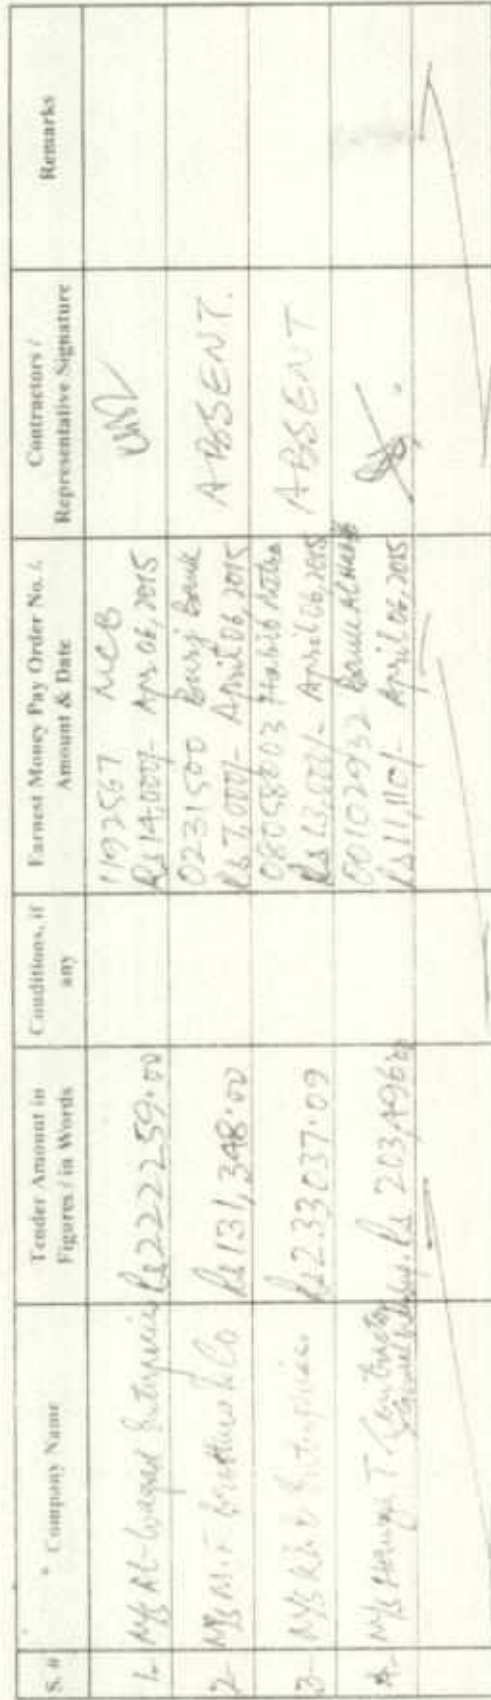 S. #
Company Name
Tender Amount in
Figures / in Words
Conditions, if
any
Earnest Money Pay Order No. /
Amount & Date
Contractors /
Representative Signature
Remarks
1. M/s Al- Enterprises Rs 222259.00
1192567 MCB
Rs 14,000/- Apr 06, 2015
2- M/s M.F. Brothers & Co Rs 131,348.00
0231500 Burj Bank
Rs 7,000/- April 06, 2015
ABSENT.
3- M/s Enterprises Rs 233037.09
08058003 Habib Metro
Rs 13,000/- April 06, 2015
ABSENT
4- M/s T. Contractor
Rs 203,496.00
00102932 Bank Al Habib
Rs 11,110/- April 06, 2015